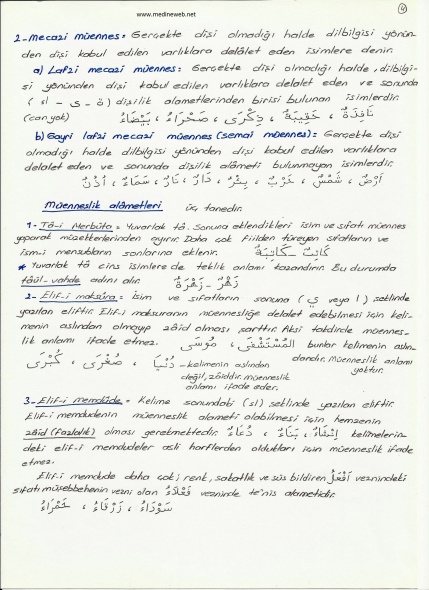 www.medineweb.net
4
2-Mecazi müennes= Gerçekte dişi olmadığı halde dilbilgisi yönün-
den dişi kabul edilen varlıklara delâlet eden isimlere denir.
a) Lafzi mecazi müennes: Gerçekte dişi olmadığı halde, dilbilgi-
si yönünden dişi kabul edilen varlıklara delalet eden ve sonunda
(ة - ى - اء) dişilik alametlerinden birisi bulunan isimlerdir.
(can yok) نَافِذَةٌ ، حَقِيبَةٌ ، ذِكْرَى ، صَحْرَاءُ ، بَيْضَاءُ
b) Gayri lafzi mecazi müennes (semai müennes)= Gerçekte dişi
olmadığı halde dilbilgisi yönünden dişi kabul edilen varlıklara
delalet eden ve sonunda dişilik alâmeti bulunmayan isimlerdir.
أَرْضٌ ، شَمْسٌ ، حَرْبٌ ، بِئْرٌ ، دَارٌ ، نَارٌ ، سَمَاءٌ ، أُذُنٌ
Müenneslik alâmetleri üç tanedir.
1- Tâ-i Merbûta= Yuvarlak tâ. Sonuna eklendikleri isim ve sıfatı müennes
yaparak müzekkerlerinden ayırır. Daha çok fiilden türeyen sıfatların ve
ism-i mensubların sonlarına eklenir. كَاتِبٌ - كَاتِبَةٌ
* Yuvarlak tâ cins isimlere de teklik anlamı kazandırır. Bu durumda
tâül-vahde adını alır. زَهْرٌ - زَهْرَةٌ
2- Elif-i maksûra= İsim ve sıfatların sonuna (ى veya ا) şeklinde
yazılan eliftir. Elif-i maksuranın müennesliğe delalet edebilmesi için keli-
menin aslından olmayıp zâid olması şarttır. Aksi takdirde müennes-
lik anlamı ifade etmez. المُسْتَشْفَى ، مُوسَى bunlar kelimenin aslın-
dandır. Müenneslik anlamı yoktur.
دُنْيَا ، صُغْرَى ، كُبْرَى kelimenin aslından
değil, zâiddir. müenneslik
anlamı ifade eder.
3- Elif-i memdûde= Kelime sonundaki (اء) şeklinde yazılan eliftir.
Elif-i memdudenin müenneslik alameti olabilmesi için hemzenin
zâid (fazlalık) olması gerekmektedir. إِنْشَاءٌ ، بِنَاءٌ ، دُعَاءٌ kelimelerin-
deki elif-i memdudeler asli harflerden oldukları için müenneslik ifade
etmez.
Elif-i memdude daha çok; renk, sakatlık ve süs bildiren أَفْعَلُ veznindeki
sıfatı müşebbehenin vezni olan فَعْلَاءُ vezninde te'nis alametidir.
سَوْدَاءُ ، زَرْقَاءُ ، حَمْرَاءُ